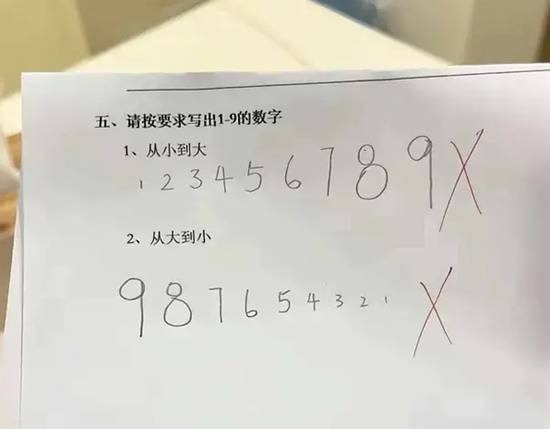 五、请按要求写出1-9的数字
1、从小到大
1 2 3 4 5 6 7 8 9 X
2、从大到小
9 8 7 6 5 4 3 2 1 X